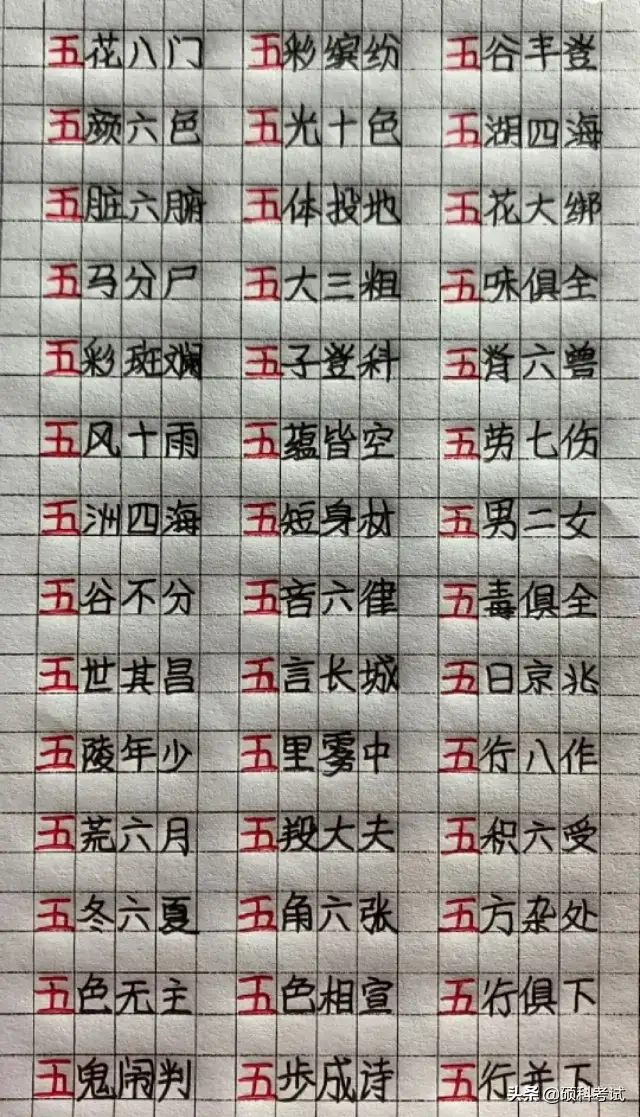 五花八门 五彩缤纷 五谷丰登
五颜六色 五光十色 五湖四海
五脏六腑 五体投地 五花大绑
五马分尸 五大三粗 五味俱全
五彩斑斓 五子登科 五脊六兽
五风十雨 五蕴皆空 五劳七伤
五洲四海 五短身材 五男二女
五谷不分 五音六律 五毒俱全
五世其昌 五言长城 五日京兆
五陵年少 五里雾中 五行八作
五荒六月 五羖大夫 五积六受
五冬六夏 五角六张 五方杂处
五色无主 五色相宣 五行俱下
五鬼闹判 五步成诗 五行并下
头条 @硕科考试